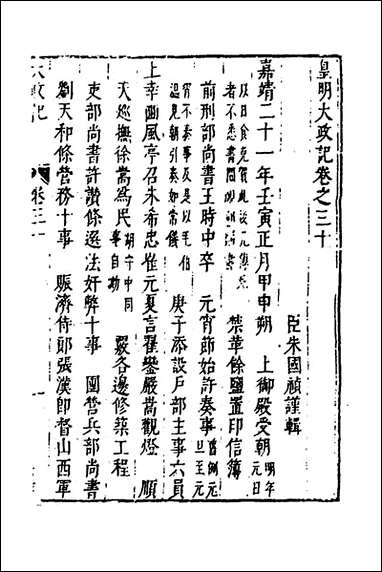 皇明大政記卷之三十
臣朱國禎謹輯
嘉靖二十一年壬寅正月甲申朔 上御殿受朝 明年元日
禁革餘鹽置印信簿
前刑部尚書王時中卒 元宵節始許奏事 舊例元旦至元
宵不奏事及是以毛伯溫見朝引奏如常儀 庚子添設戶部主事六員
上幸豳風亭召朱希忠崔元夏言翟鑾嚴嵩觀燈 順
天巡撫徐嵩爲民 胡守中同事自劾 嚴各邊修築工程
吏部尚書許讚條選法奸弊十事 團營兵部尚書
劉天和條營務十事 賑濟侍郎張漢卽督山西軍
大政記 卷三十 一